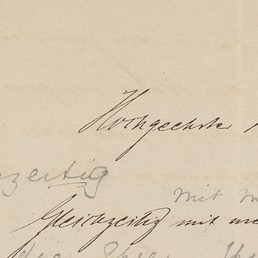 Hochgeehrter
zeitig
mit
Gleichzeitig mit